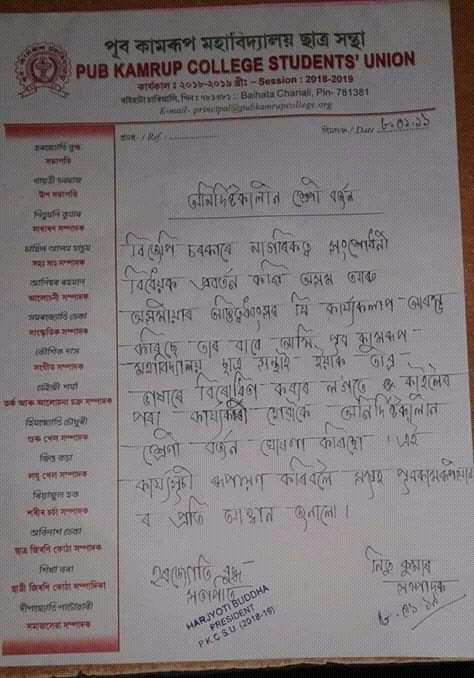 পূব কামৰূপ মহাবিদ্যালয় ছাত্ৰ সন্থা
PUB KAMRUP COLLEGE STUDENTS' UNION
কাৰ্যকাল : ২০১৮-২০১৯ খ্ৰীঃ – Session : 2018-2019
বাইহাটা চাৰিআলি, পিন : ৭৮১৩৮১ :: Baihata Chariali, Pin- 781381
E-mail- principal@pubkamrupcollege.org
পত্ৰাংক- / Ref. :
দিনাংক- / Date ৮.০১.১৯
হৰজ্যোতি বুদ্ধ
সভাপতি
গায়ত্ৰী ডেকাৰজা
উপ সভাপতি
নিতুমণি কুমাৰ
সাধাৰণ সম্পাদক
চামিল আলম মাছুম
সহঃ সাঃ সম্পাদক
আনিছুৰ ৰহমান
আলোচনী সম্পাদক
সমৰজ্যোতি ডেকা
সাংস্কৃতিক সম্পাদক
কৌশিক দাস
সংগীত সম্পাদক
মৈত্ৰেয়ী শৰ্মা
তৰ্ক আৰু আলোচনা চক্ৰ সম্পাদক
হিমজ্যোতি চৌধুৰী
গুৰু খেল সম্পাদক
জিন্ত কড়া
লঘু খেল সম্পাদক
ৰিয়াজুল হক
শৰীৰ চৰ্চা সম্পাদক
অবিনাশ ডেকা
ছাত্ৰ জিৰণি কোঠা সম্পাদক
শিখা বৰা
ছাত্ৰী জিৰণি কোঠা সম্পাদিকা
দীপজ্যোতি পাটোৱাৰী
সমাজসেৱা সম্পাদক
অনিৰ্দিষ্টকালীন শ্ৰেণী বৰ্জন
বিজেপি চৰকাৰে নাগৰিকত্ব সংশোধনী
বিধেয়ক প্ৰবৰ্তন কৰি অসম আৰু
অসমীয়াৰ অস্তিত্বধ্বংসৰ যি কাৰ্য্যকলাপ আৰম্ভ
কৰিছে তাৰ বাবে আমি, পূব কামৰূপ
মহাবিদ্যালয় ছাত্ৰ সন্থাই ইয়াক তীব্ৰ
ভাষাৰে বিৰোধিতা কৰাৰ লগতে কাইলৈৰ
পৰা কাৰ্য্যকৰী হোৱাকৈ অনিৰ্দিষ্টকালীন
শ্ৰেণী বৰ্জন ঘোষণা কৰিছো । এই
কাৰ্য্যসূচী ৰূপায়ণ কৰিবলৈ সমূহ পূবকামৰূপীয়া
ৰ প্ৰতি আহ্বান জনালো ।
হৰজ্যোতি বুদ্ধ
সভাপতি
HARJYOTI BUDDHA
PRESIDENT
P.K.C.S.U (2018-19)
নিতু কুমাৰ
সম্পাদক
৮.০১.১৯